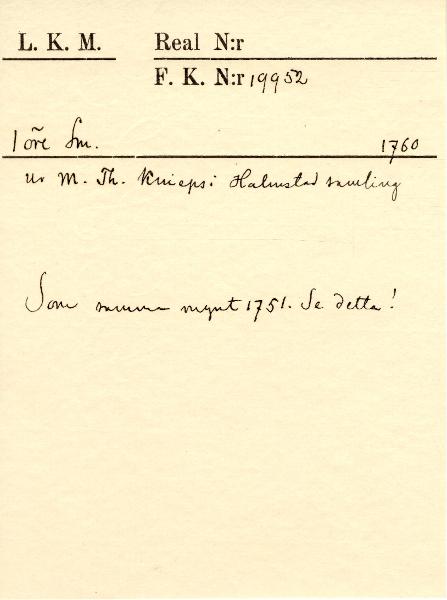 L. K. M. Real N:r
F. K. N:r 19952
1 öre Sm. 1760
ur M. Th. Knieps i Halmstad samling
Som samma mynt 1751. Se detta!